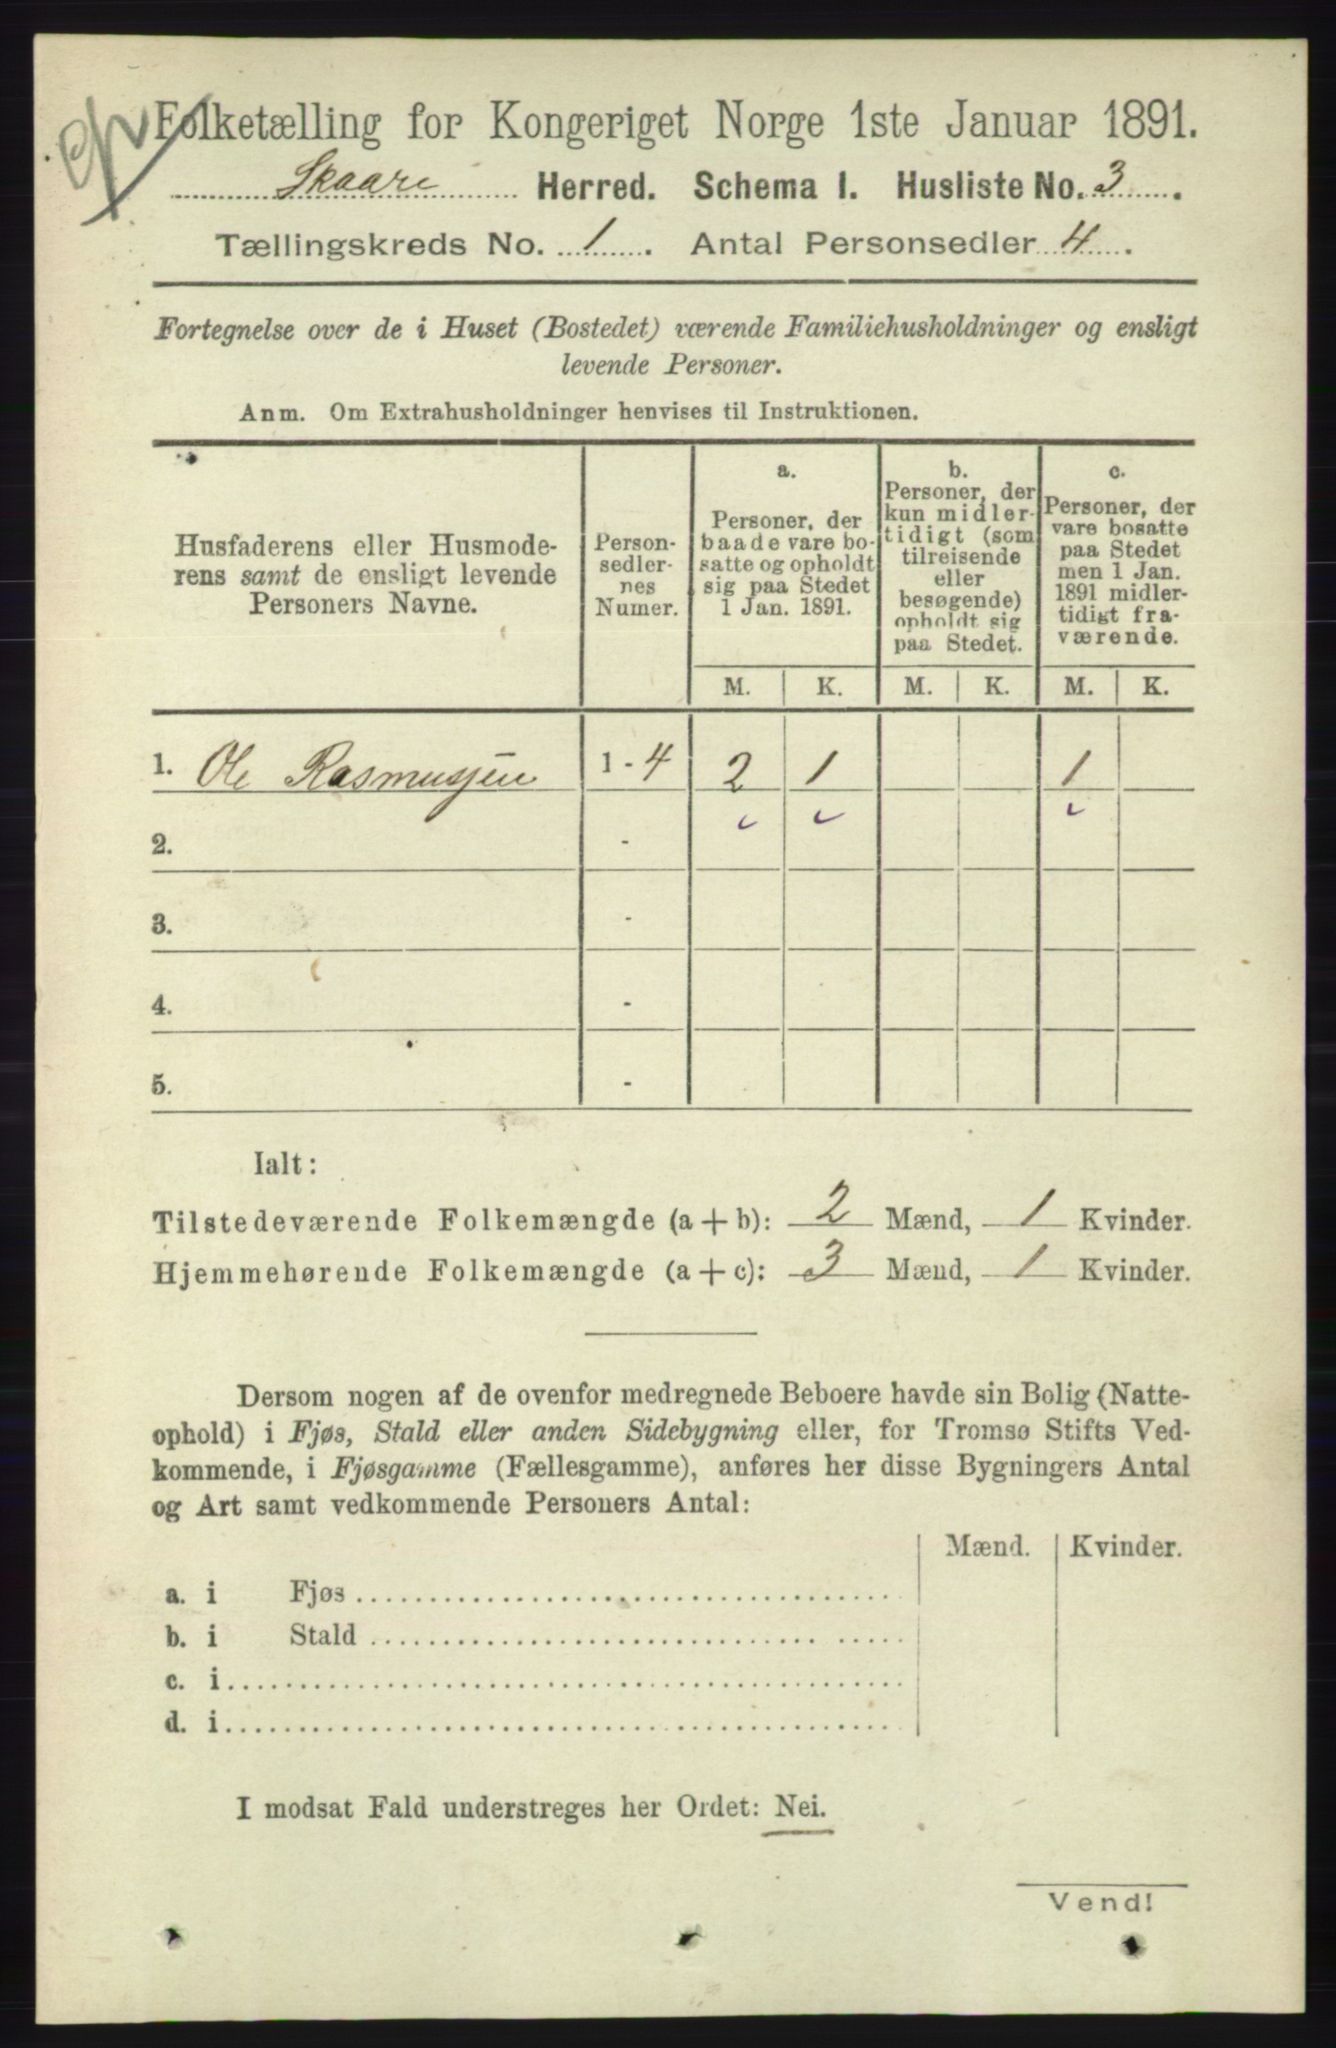 Folketælling for Kongeriget Norge 1ste Januar 1891.
Skaare Herred. Schema 1. Husliste No. 3.
Tællingskreds No. 1. Antal Personsedler 4.
Fortegnelse over de i Huset (Bostedet) værende Familiehusholdninger og ensligt
levende Personer.
Anm. Om Extrahusholdninger henvises til Instruktionen.
Husfaderens eller Husmode-
rens samt de ensligt levende
Personers Navne.
Person-
sedler-
nes
Numer.
a.
Personer, der
baade vare bo-
satte og opholdt
sig paa Stedet
1 Jan. 1891.
b.
Personer, der
kun midler-
tidigt (som
tilreisende
eller
besøgende)
opholdt sig
paa Stedet.
c.
Personer, der
vare bosatte
paa Stedet
men 1 Jan.
1891 midler-
tidigt fra-
værende.
M. K. M. K. M. K.
1. Ole Rasmussen 1 - 4 2 1 1
2. -
3. -
4. -
5. -
Ialt:
Tilstedeværende Folkemængde (a + b): 2 Mænd, 1 Kvinder.
Hjemmehørende Folkemængde (a + c): 3 Mænd, 1 Kvinder.
Dersom nogen af de ovenfor medregnede Beboere havde sin Bolig (Natte-
ophold) i Fjøs, Stald eller anden Sidebygning eller, for Tromsø Stifts Ved-
kommende, i Fjøsgamme (Fællesgamme), anføres her disse Bygningers Antal
og Art samt vedkommende Personers Antal:
Mænd. Kvinder.
a. i Fjøs
b. i Stald
c. i
d. i
I modsat Fald understreges her Ordet: Nei.
Vend!